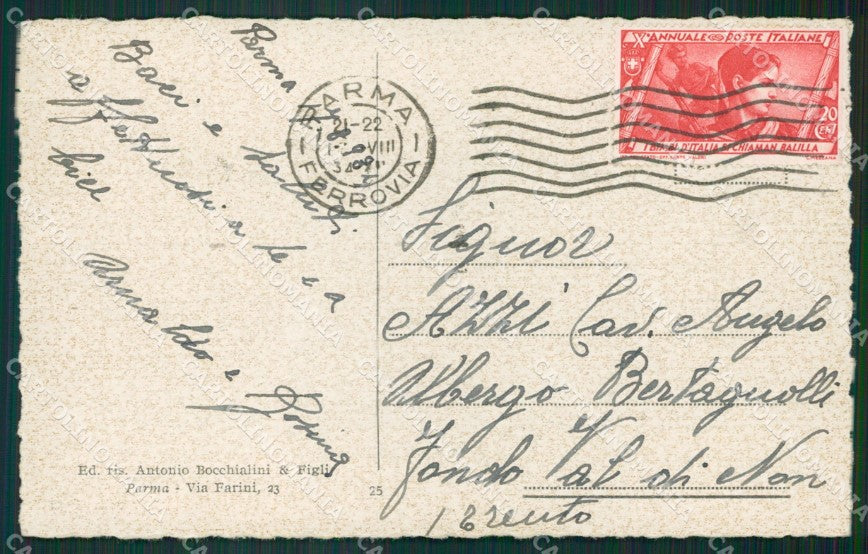 Parma
Baci e saluti
affettuosi a te e a
Arnaldo e Rosina
Ed. ris. Antonio Bocchialini & Figli
Parma - Via Farini, 23
25
PARMA
21-22
VIII
FERROVIA
Xº ANNUALE POSTE ITALIANE
20
CENT
I FIGLI D'ITALIA SI CHIAMAN BALILLA
Signor
Azzi Cav. Angelo
Albergo Bertagnolli
Fondo Val di Non
(Trento
CARTOLINOMANIA